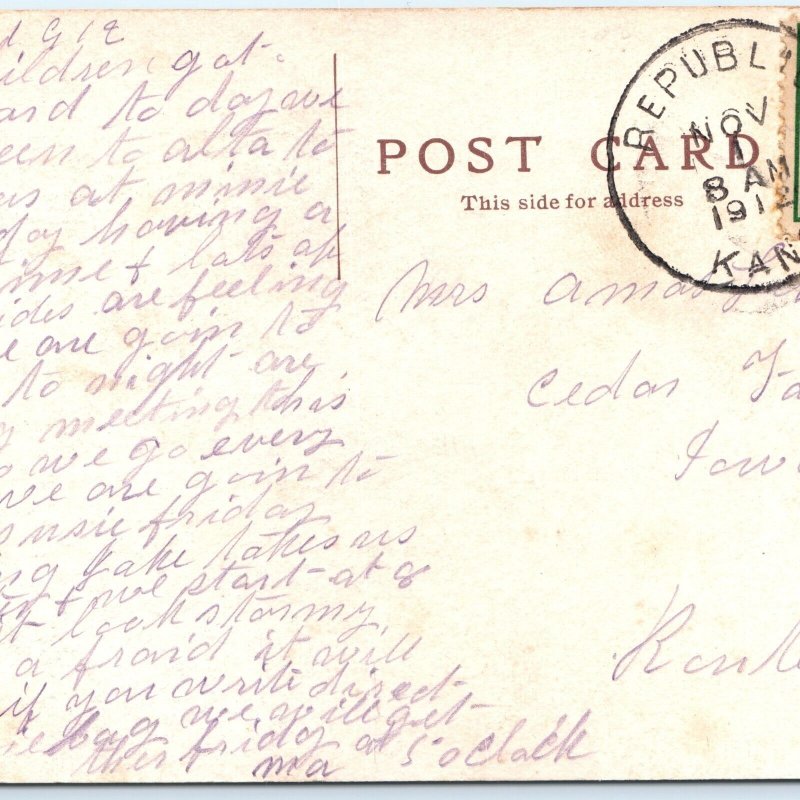 ildren got
ard to day we
een to alta to
as at minie
day having a
time + lots of
ides are feeling
e are goin to
to night are
g meeting this
o we go every
we are goin to
susie friday
ng Jake takes us
+ we start at 8
t look stormy
a fraid it will
if you write direct
bag we will get
ther friday at 5 oclock
ma
POST CARD
This side for address
REPUBLI
NOV
1
8 AM
1912
KAN
Mrs Amos
Cedar Fa
Iowa